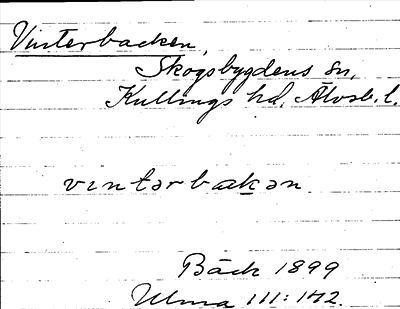 Vinterbacken,
Skogsbygdens sn,
Kullings hd, Älvsb. l.
vintərbakən.
Bäck 1899
Ulma 111:142.